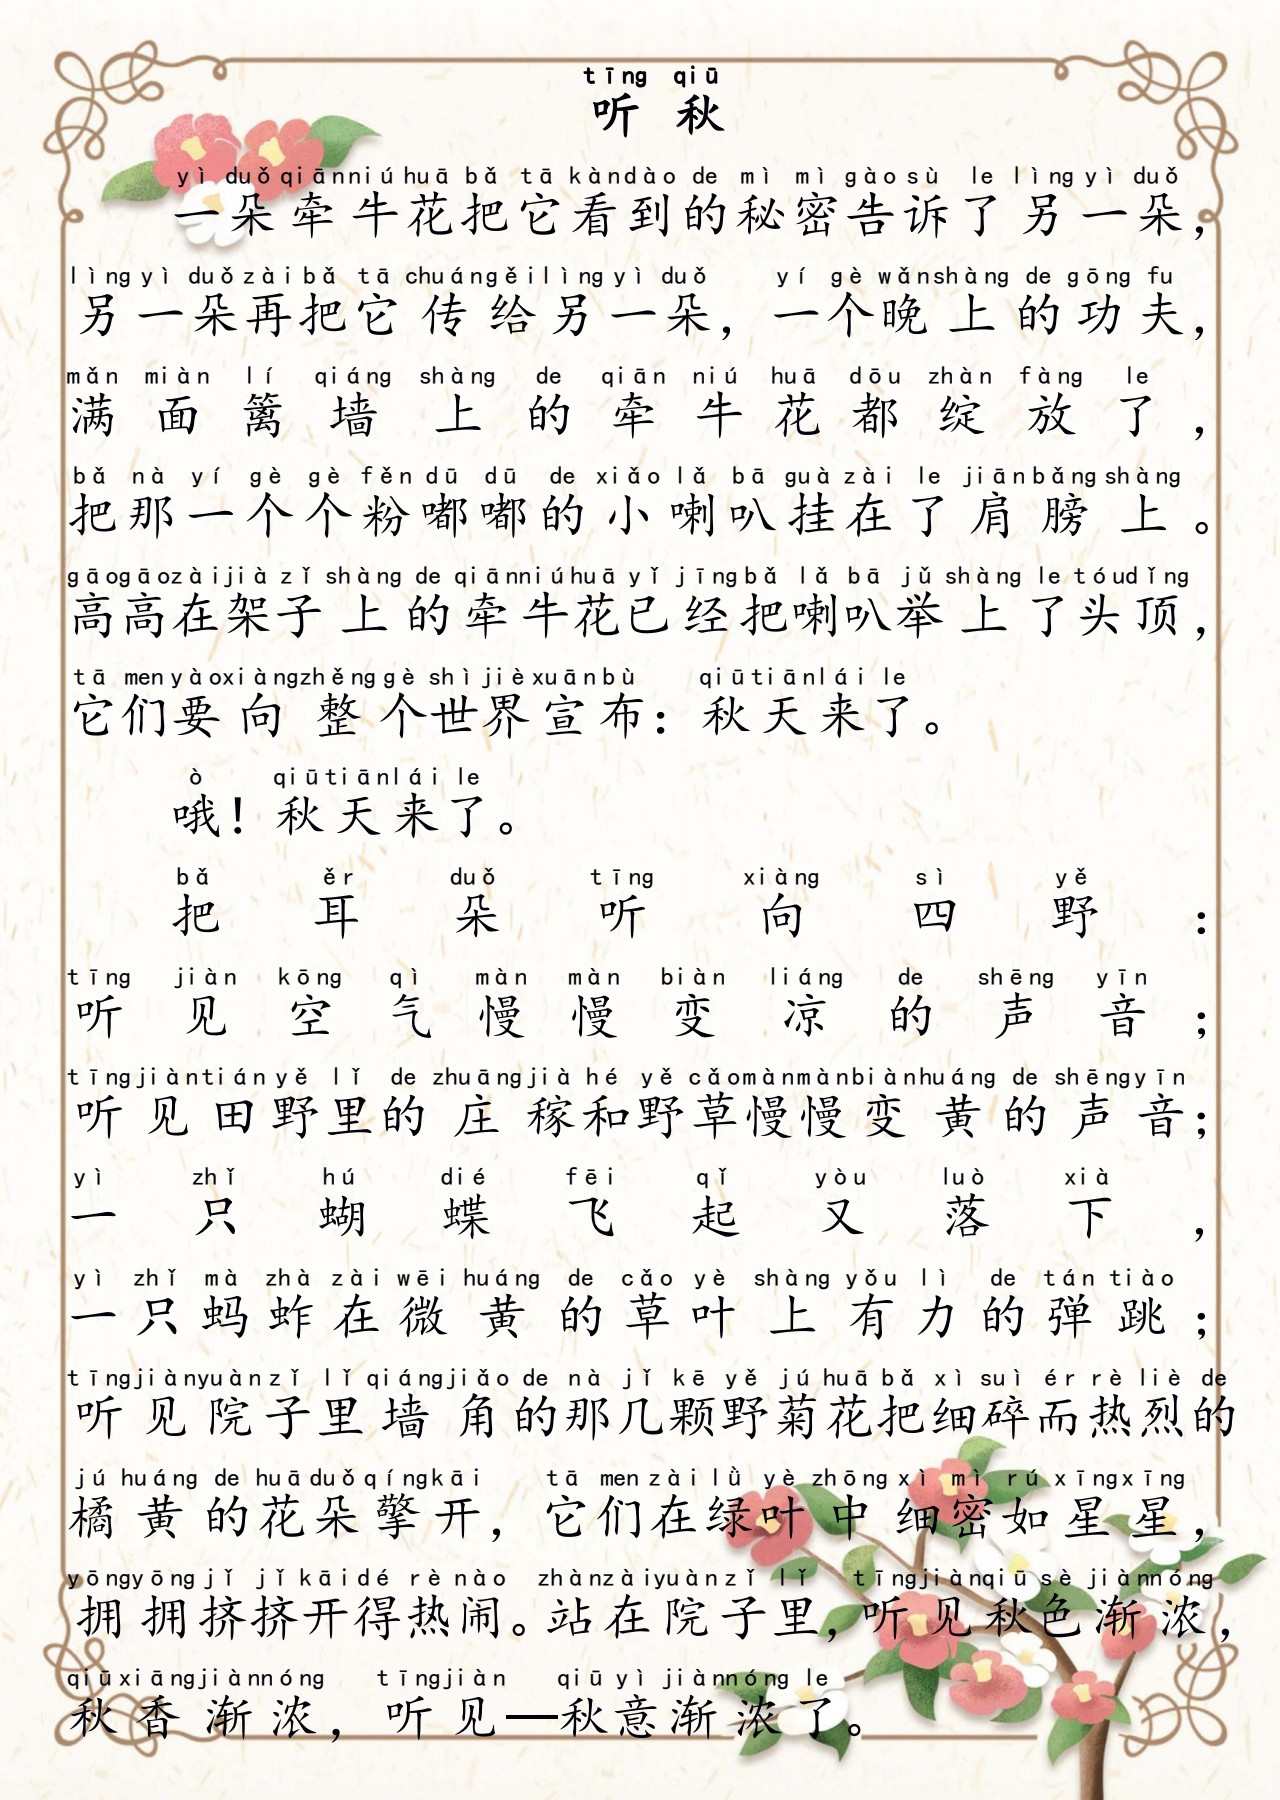 tīng qiū
听秋
yì duǒ qiān niú huā bǎ tā kàn dào de mì mì gào sù le lìng yì duǒ
一朵牵牛花把它看到的秘密告诉了另一朵，
lìng yì duǒ zài bǎ tā chuán gěi lìng yì duǒ yí gè wǎn shàng de gōng fu
另一朵再把它传给另一朵，一个晚上的功夫，
mǎn miàn lí qiáng shàng de qiān niú huā dōu zhàn fàng le
满面篱墙上的牵牛花都绽放了，
bǎ nà yí gè gè fěn dū dū de xiǎo lǎ bā guà zài le jiān bǎng shàng
把那一个个粉嘟嘟的小喇叭挂在了肩膀上。
gāo gāo zài jià zǐ shàng de qiān niú huā yǐ jīng bǎ lǎ bā jǔ shàng le tóu dǐng
高高在架子上的牵牛花已经把喇叭举上了头顶，
tā men yào xiàng zhěng gè shì jiè xuān bù qiū tiān lái le
它们要向整个世界宣布：秋天来了。
ò qiū tiān lái le
哦！秋天来了。
bǎ ěr duǒ tīng xiàng sì yě
把耳朵听向四野：
tīng jiàn kōng qì màn màn biàn liáng de shēng yīn
听见空气慢慢变凉的声音；
tīng jiàn tián yě lǐ de zhuāng jià hé yě cǎo màn màn biàn huáng de shēng yīn
听见田野里的庄稼和野草慢慢变黄的声音；
yì zhǐ hú dié fēi qǐ yòu luò xià
一只蝴蝶飞起又落下，
yì zhǐ mà zhà zài wēi huáng de cǎo yè shàng yǒu lì de tán tiào
一只蚂蚱在微黄的草叶上有力的弹跳；
tīng jiàn yuàn zǐ lǐ qiáng jiǎo de nà jǐ kē yě jú huā bǎ xì suì ér rè liè de
听见院子里墙角的那几颗野菊花把细碎而热烈的
jú huáng de huā duǒ qíng kāi tā men zài lǜ yè zhōng xì mì rú xīng xīng
橘黄的花朵擎开，它们在绿叶中细密如星星，
yōng yōng jǐ jǐ kāi dé rè nào zhàn zài yuàn zǐ lǐ tīng jiàn qiū sè jiàn nóng
拥拥挤挤开得热闹。站在院子里，听见秋色渐浓，
qiū xiāng jiàn nóng tīng jiàn qiū yì jiàn nóng le
秋香渐浓，听见—秋意渐浓了。